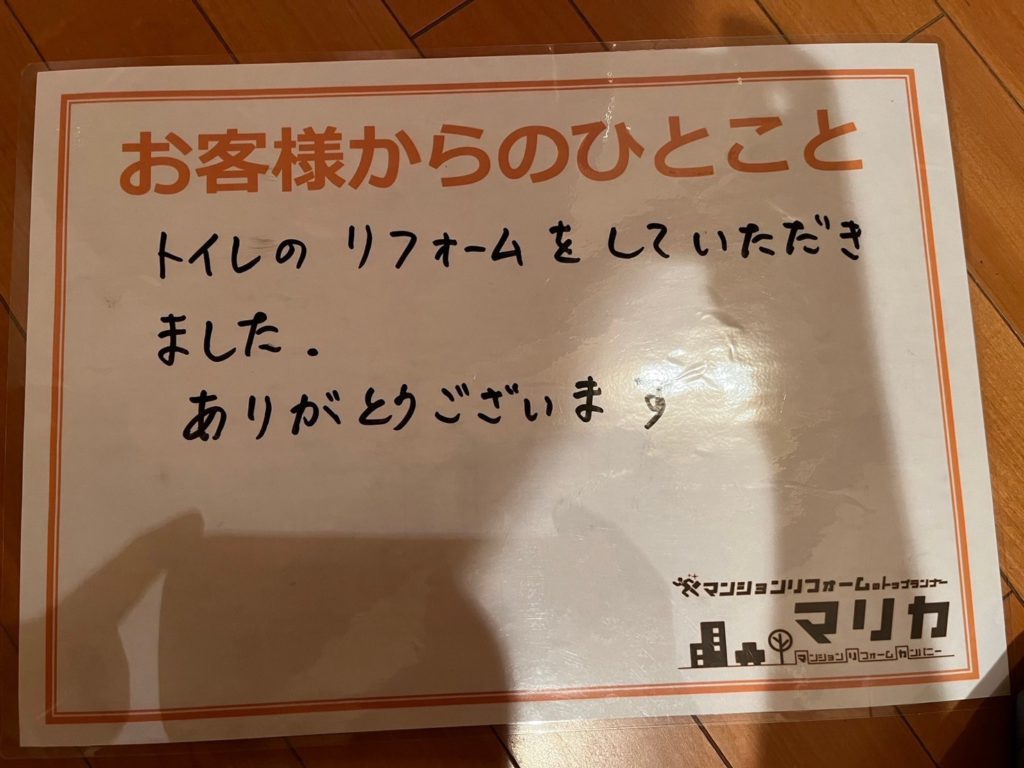 お客様からのひとこと
トイレの リフォームをしていただき
ました.
ありがとうございます
マンションリフォームのトップランナー
マリカ
マンションリフォームカンパニー